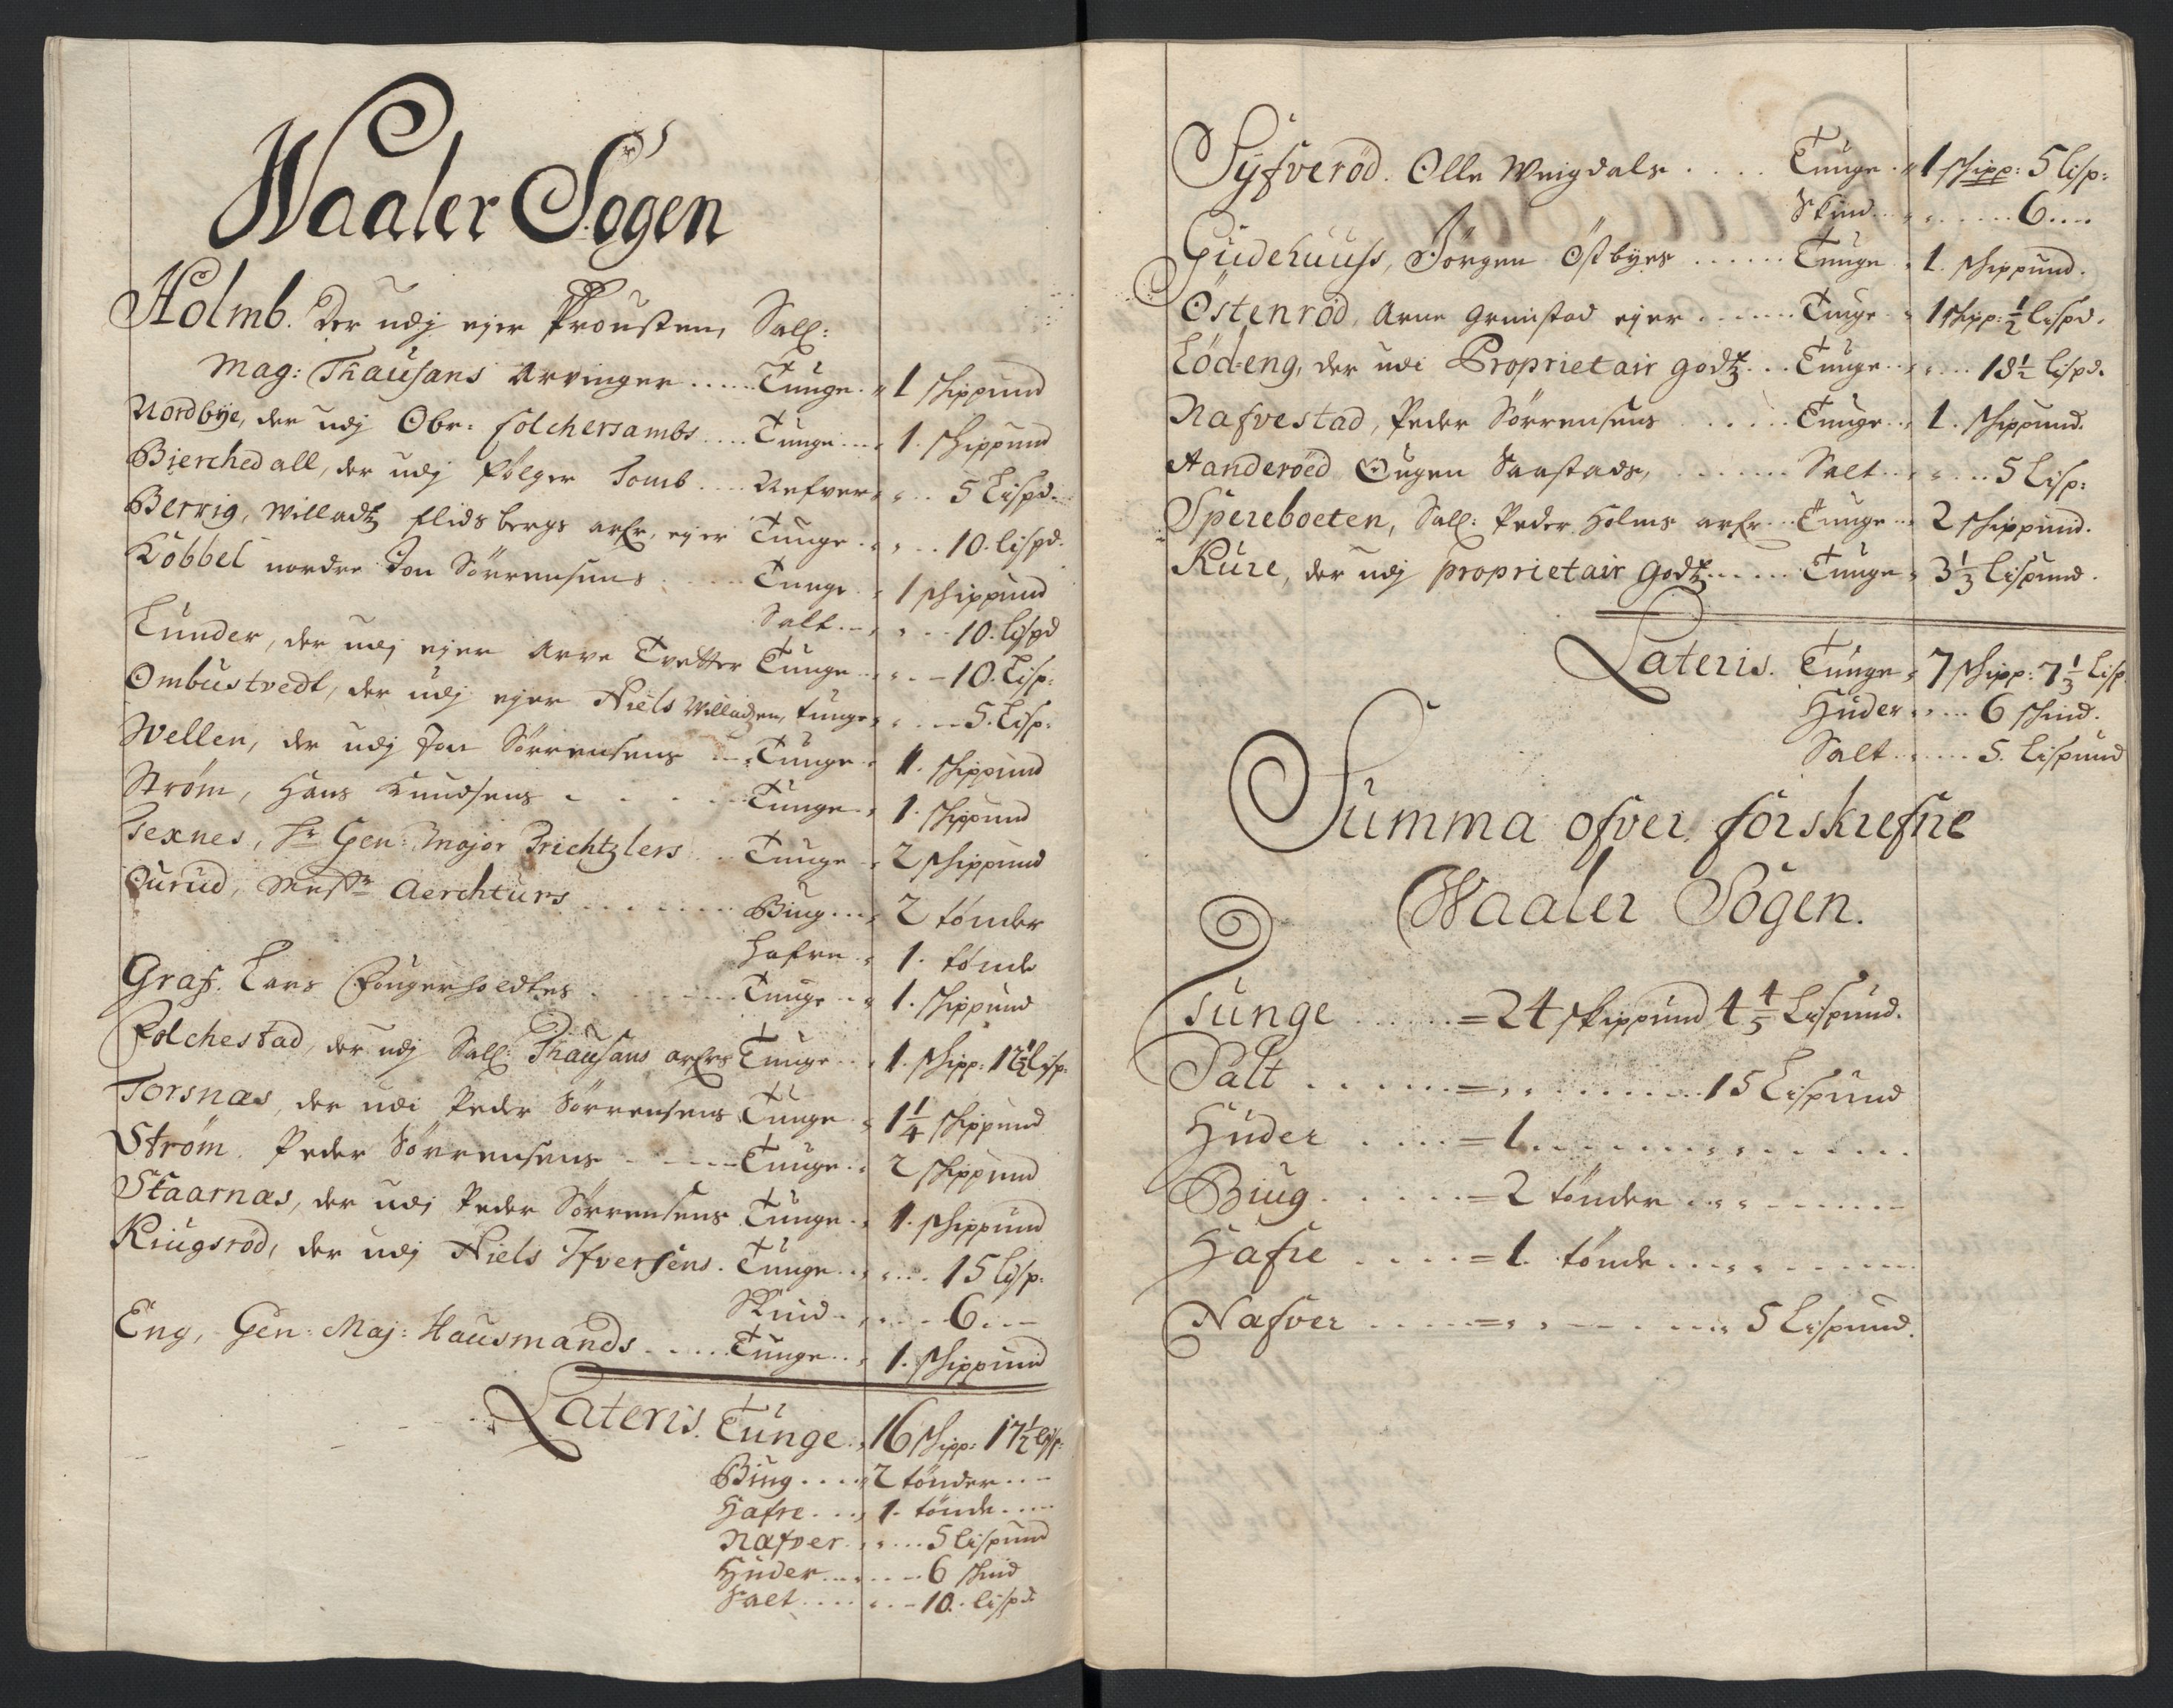 Waaler Sogen
Holmb. Der udj ejer Prousten, Sall:
Mag: Thausans Arvinger ..... Tunge. „ 1 skippund
Nordbÿe, der udj Obr: Colchersambs .... Tunge ... „ 1. skippund
Bierchedall, der udj Holger Tomb .... Nefver „ „ .. 5 Lispd.
Berrig, Willadtz Flidsbergs arfr, ejer Tunge .. „ .. 10. lispd.
Kobbel nordre Jon Sörrensens ..... Tunge . „ 1 skippund
Salt .. „ „ ... 10. lispd
Tunder, der udj ejer Arve Tvetter Tunge .. „ .. 10. Lisp:
Ombustvedt, der udj ejer Niels Willadzen, tunge „ ... 5. Lisp:
Wellen, der udj Jon Sörrensens ... Tunge . „ 1. skippund
Strøm, Hans Knudsens . . . . . Tunge . „ 1. skippund
Texnes, Hr Gen: Major Brichtzlers .. Tunge . „ 2 skippund
Ourud, Messr Aerchturs ........ Biug ... „ 2 tønder
Hafre . „ 1. tønde
Graf. Lars Fougerholdtes ....... Tunge .. „ 1. skippund
Folchestad, der udj Sall: Thausans arfrs Tunge .. „ 1. skipp: 12½ lisp:
Torsnæs, der udi Peder Sörrensens Tunge . „ 1¼ skippund
Strøm. Peder Sörrensens ..... Tunge .. „ 2 skippund
Staarnæs, der udj Peder Sörrensens Tunge . „ 1. skippund
Kiugsrød, der udj Niels Ifversens . Tunge ... „ .... 15 lisp:
Skind .. „ .... 6 ...
Eng, Gen: Maj: Hausmands ..... Tunge .. „ 1. skippund
Lateris. Tunge . „ 16 skipp: 17½ lisp:
Biug .... „ 2 tönder ....
Hafre .... „ 1. tönde ....
Næfver . „ .... 5 Lispund
Huder ........ 6 skind
Salt ........ 10. lispd:
Syfveröd. Olle Weigdals ..... Tunge . „ 1 skipp: 5 lisp:
Skind ... „ ...... 6 ....
Gudehuuss, Jörgen Östbyes ...... Tunge . „ 1. skippund.
Östenröd, Arne Grimstad ejer ....... Tunge . „ 1 skipp: ½ lispd.
Löd-eng, der udi Proprietair godtz ... Tunge .. „ .... 18½ lispd.
Nafvestad, Peder Sörrensens ...... Tunge .. „ 1. skippund.
Handeröed Eugen Saastads, ....... Salt .. „ .... 5 Lisp:
Spereboeten, Sall: Peder Holms arfr .. Tunge .. „ 2 skippund.
Kure, der udj proprietair Godtz ..... Tunge „ 3⅓ Lispund.
Lateris. Tunge „ 7 skipp: 7⅓ Lisp
Huder „ ... 6 skind.
Salt ...... 5. Lispund
Summa ofver forskrefne
Waaler Sogen.
Tunge ...... = 24 skippund 4⅘ Lispund.
Salt ....... = „ ........ 15 Lispund
Huder ..... = 1 .............
Biug ...... = 2 tönder .........
Hafre ..... = 1. tönde .........
Nafver ..... = „ „ ...... 5 Lispund.